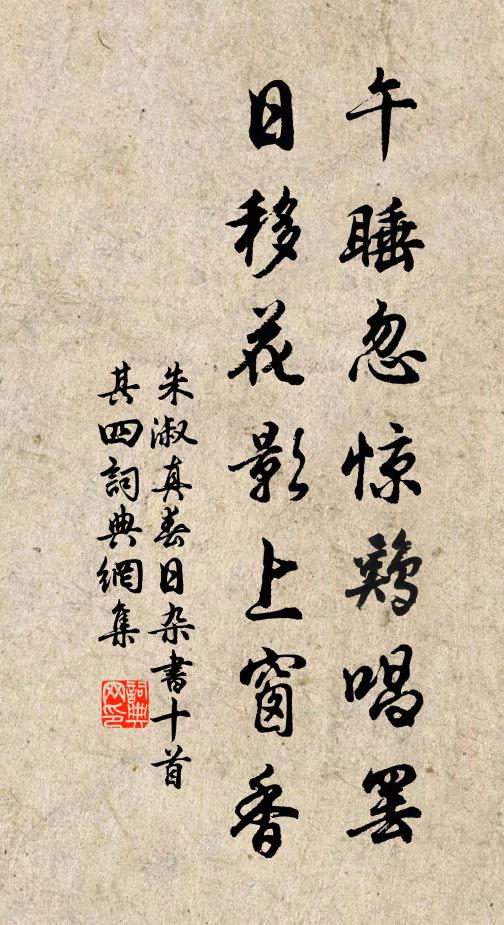 午睡忽惊鷄唱罢
日移花影上窗香
朱淑真春日杂書十首
其四詞典網集
詞典网印